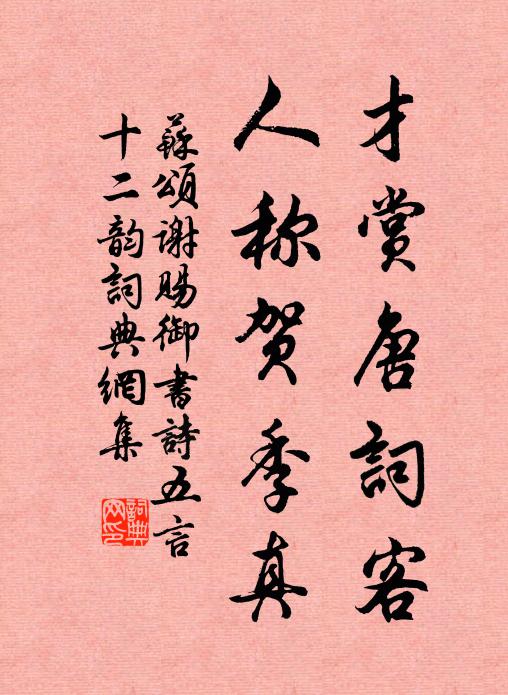 才賞唐詞客
人称賀季真
蘇頌謝賜御書詩五言
十二韵詞典網集
詞典
网印